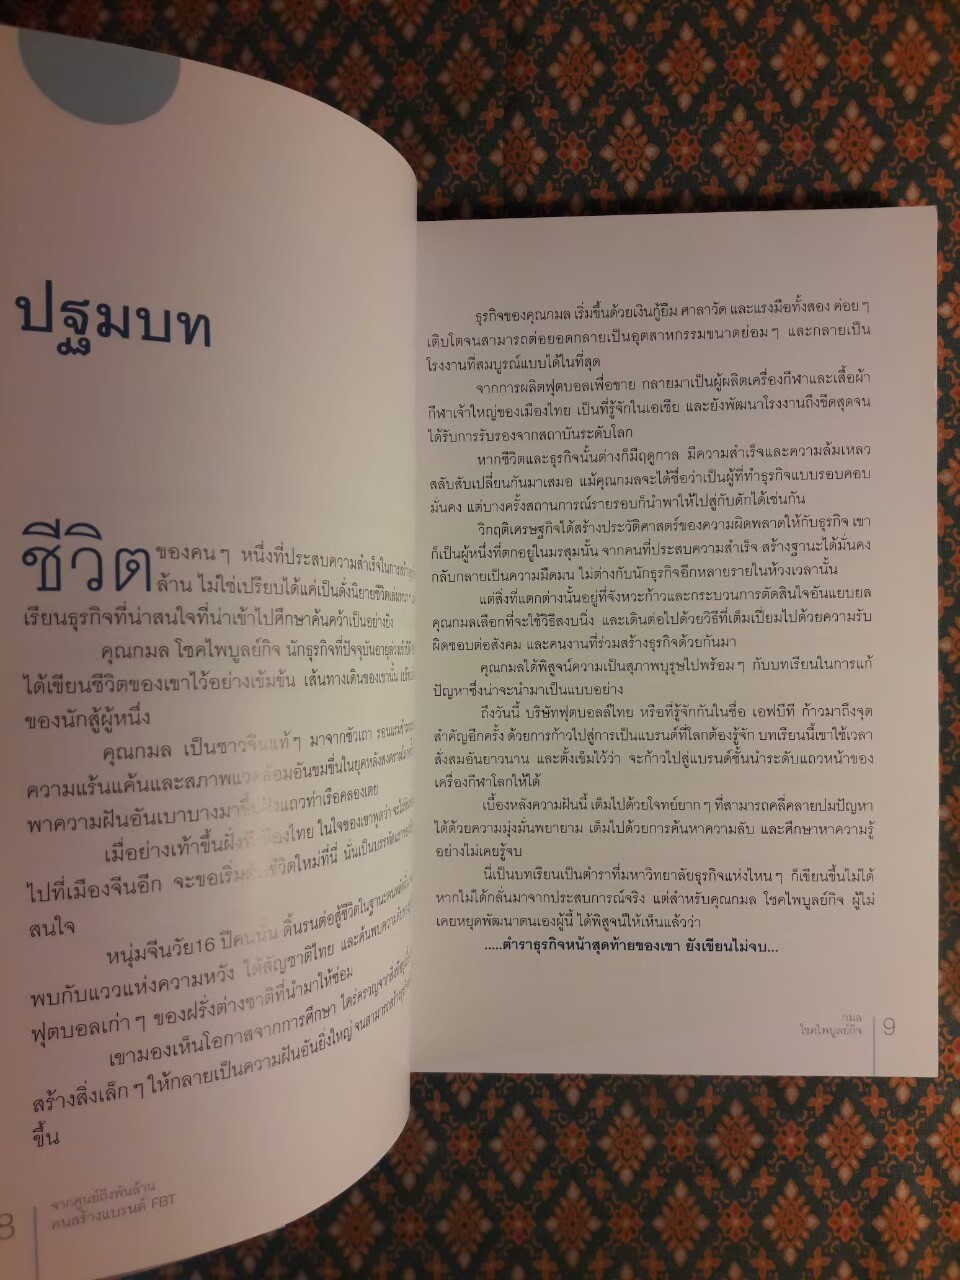 ปฐมบท
ชีวิต ของคนๆ หนึ่งที่ประสบความสำเร็จในการสร้าง
ล้าน ไม่ใช่เปรียบได้แค่เป็นดั่งนิยายชีวิตเล่มหนา
เรียนธุรกิจที่น่าสนใจที่น่าเข้าไปศึกษาค้นคว้าเป็นอย่างยิ่ง
คุณกมล โชคไพบูลย์กิจ นักธุรกิจที่ปัจจุบันอายุล่วงเข้า
ได้เขียนชีวิตของเขาไว้อย่างเข้มข้น เส้นทางเดินของเขานั้น
ของนักสู้ผู้หนึ่ง
คุณกมล เป็นชาวจีนแท้ๆ มาจากซัวเถา รอนแรมข้าม
ความแร้นแค้นและสภาพแวดล้อมอันขมขื่นในยุคหลังสงคราม
พาความฝันอันเบาบางมาขึ้นฝั่งแถวท่าเรือคลองเตย
เมื่อย่างเท้าขึ้นฝั่งที่เมืองไทย ในใจของเขาพูดว่า จะไม่
ไปที่เมืองจีนอีก จะขอเริ่มต้นชีวิตใหม่ที่นี่ นั่นเป็นบรรทัดแรก
สนใจ
หนุ่มจีนวัย16 ปีคนนั้น ดิ้นรนต่อสู้ชีวิตในฐานะคน
พบกับแววแห่งความหวัง ได้สัญชาติไทย และค้นพบความลับของ
ฟุตบอลเก่าๆ ของฝรั่งต่างชาติที่นำมาให้ซ่อม
เขามองเห็นโอกาสจากการศึกษา ใคร่ครวญจากสิ่งที่
สร้างสิ่งเล็กๆ ให้กลายเป็นความฝันอันยิ่งใหญ่ จนสามารถสร้าง
ขึ้น
8
จากศูนย์ถึงพันล้าน
คนสร้างแบรนด์ FBT
ธุรกิจของคุณกมล เริ่มขึ้นด้วยเงินกู้ยืม ศาลาวัด และแรงมือทั้งสอง ค่อยๆ
เติบโตจนสามารถต่อยอดกลายเป็นอุตสาหกรรมขนาดย่อมๆ และกลายเป็น
โรงงานที่สมบูรณ์แบบได้ในที่สุด
จากการผลิตฟุตบอลเพื่อขาย กลายมาเป็นผู้ผลิตเครื่องกีฬาและเสื้อผ้า
กีฬาเจ้าใหญ่ของเมืองไทย เป็นที่รู้จักในเอเชีย และยังพัฒนาโรงงานถึงขีดสุดจน
ได้รับการรับรองจากสถาบันระดับโลก
หากชีวิตและธุรกิจนั้นต่างก็มีฤดูกาล มีความสำเร็จและความล้มเหลว
สลับสับเปลี่ยนกันมาเสมอ แม้คุณกมลจะได้ชื่อว่าเป็นผู้ที่ทำธุรกิจแบบรอบคอบ
มั่นคง แต่บางครั้งสถานการณ์รายรอบก็นำพาให้ไปสู่กับดักได้เช่นกัน
วิกฤติเศรษฐกิจได้สร้างประวัติศาสตร์ของความผิดพลาดให้กับธุรกิจ เขา
ก็เป็นผู้หนึ่งที่ตกอยู่ในมรสุมนั้น จากคนที่ประสบความสำเร็จ สร้างฐานะได้มั่นคง
กลับกลายเป็นความมืดมน ไม่ต่างกับนักธุรกิจอีกหลายรายในห้วงเวลานั้น
แต่สิ่งที่แตกต่างนั้นอยู่ที่จังหวะก้าวและกระบวนการตัดสินใจอันแยบยล
คุณกมลเลือกที่จะใช้วิธีสงบนิ่ง และเดินต่อไปด้วยวิธีที่เต็มเปี่ยมไปด้วยความรับ
ผิดชอบต่อสังคม และคนงานที่ร่วมสร้างธุรกิจด้วยกันมา
คุณกมลได้พิสูจน์ความเป็นสุภาพบุรุษไปพร้อมๆ กับบทเรียนในการแก้
ปัญหาซึ่งน่าจะนำมาเป็นแบบอย่าง
ถึงวันนี้ บริษัทฟุตบอลล์ไทย หรือที่รู้จักกันในชื่อ เอฟบีที ก้าวมาถึงจุด
สำคัญอีกครั้ง ด้วยการก้าวไปสู่การเป็นแบรนด์ที่โลกต้องรู้จัก บทเรียนนี้เขาใช้เวลา
สั่งสมอันยาวนาน และตั้งเข็มไว้ว่า จะก้าวไปสู่แบรนด์ชั้นนำระดับแถวหน้าของ
เครื่องกีฬาโลกให้ได้
เบื้องหลังความฝันนี้ เต็มไปด้วยโจทย์ยากๆ ที่สามารถคลี่คลายปมปัญหา
ได้ด้วยความมุ่งมั่นพยายาม เต็มไปด้วยการค้นหาความลับ และศึกษาหาความรู้
อย่างไม่เคยรู้จบ
นี่เป็นบทเรียนเป็นตำราที่มหาวิทยาลัยธุรกิจแห่งไหนๆ ก็เขียนขึ้นไม่ได้
หากไม่ได้กลั่นมาจากประสบการณ์จริง แต่สำหรับคุณกมล โชคไพบูลย์กิจ ผู้ไม่
เคยหยุดพัฒนาตนเองผู้นี้ ได้พิสูจน์ให้เห็นแล้วว่า
.....ตำราธุรกิจหน้าสุดท้ายของเขา ยังเขียนไม่จบ...
กมล
โชคไพบูลย์กิจ
9